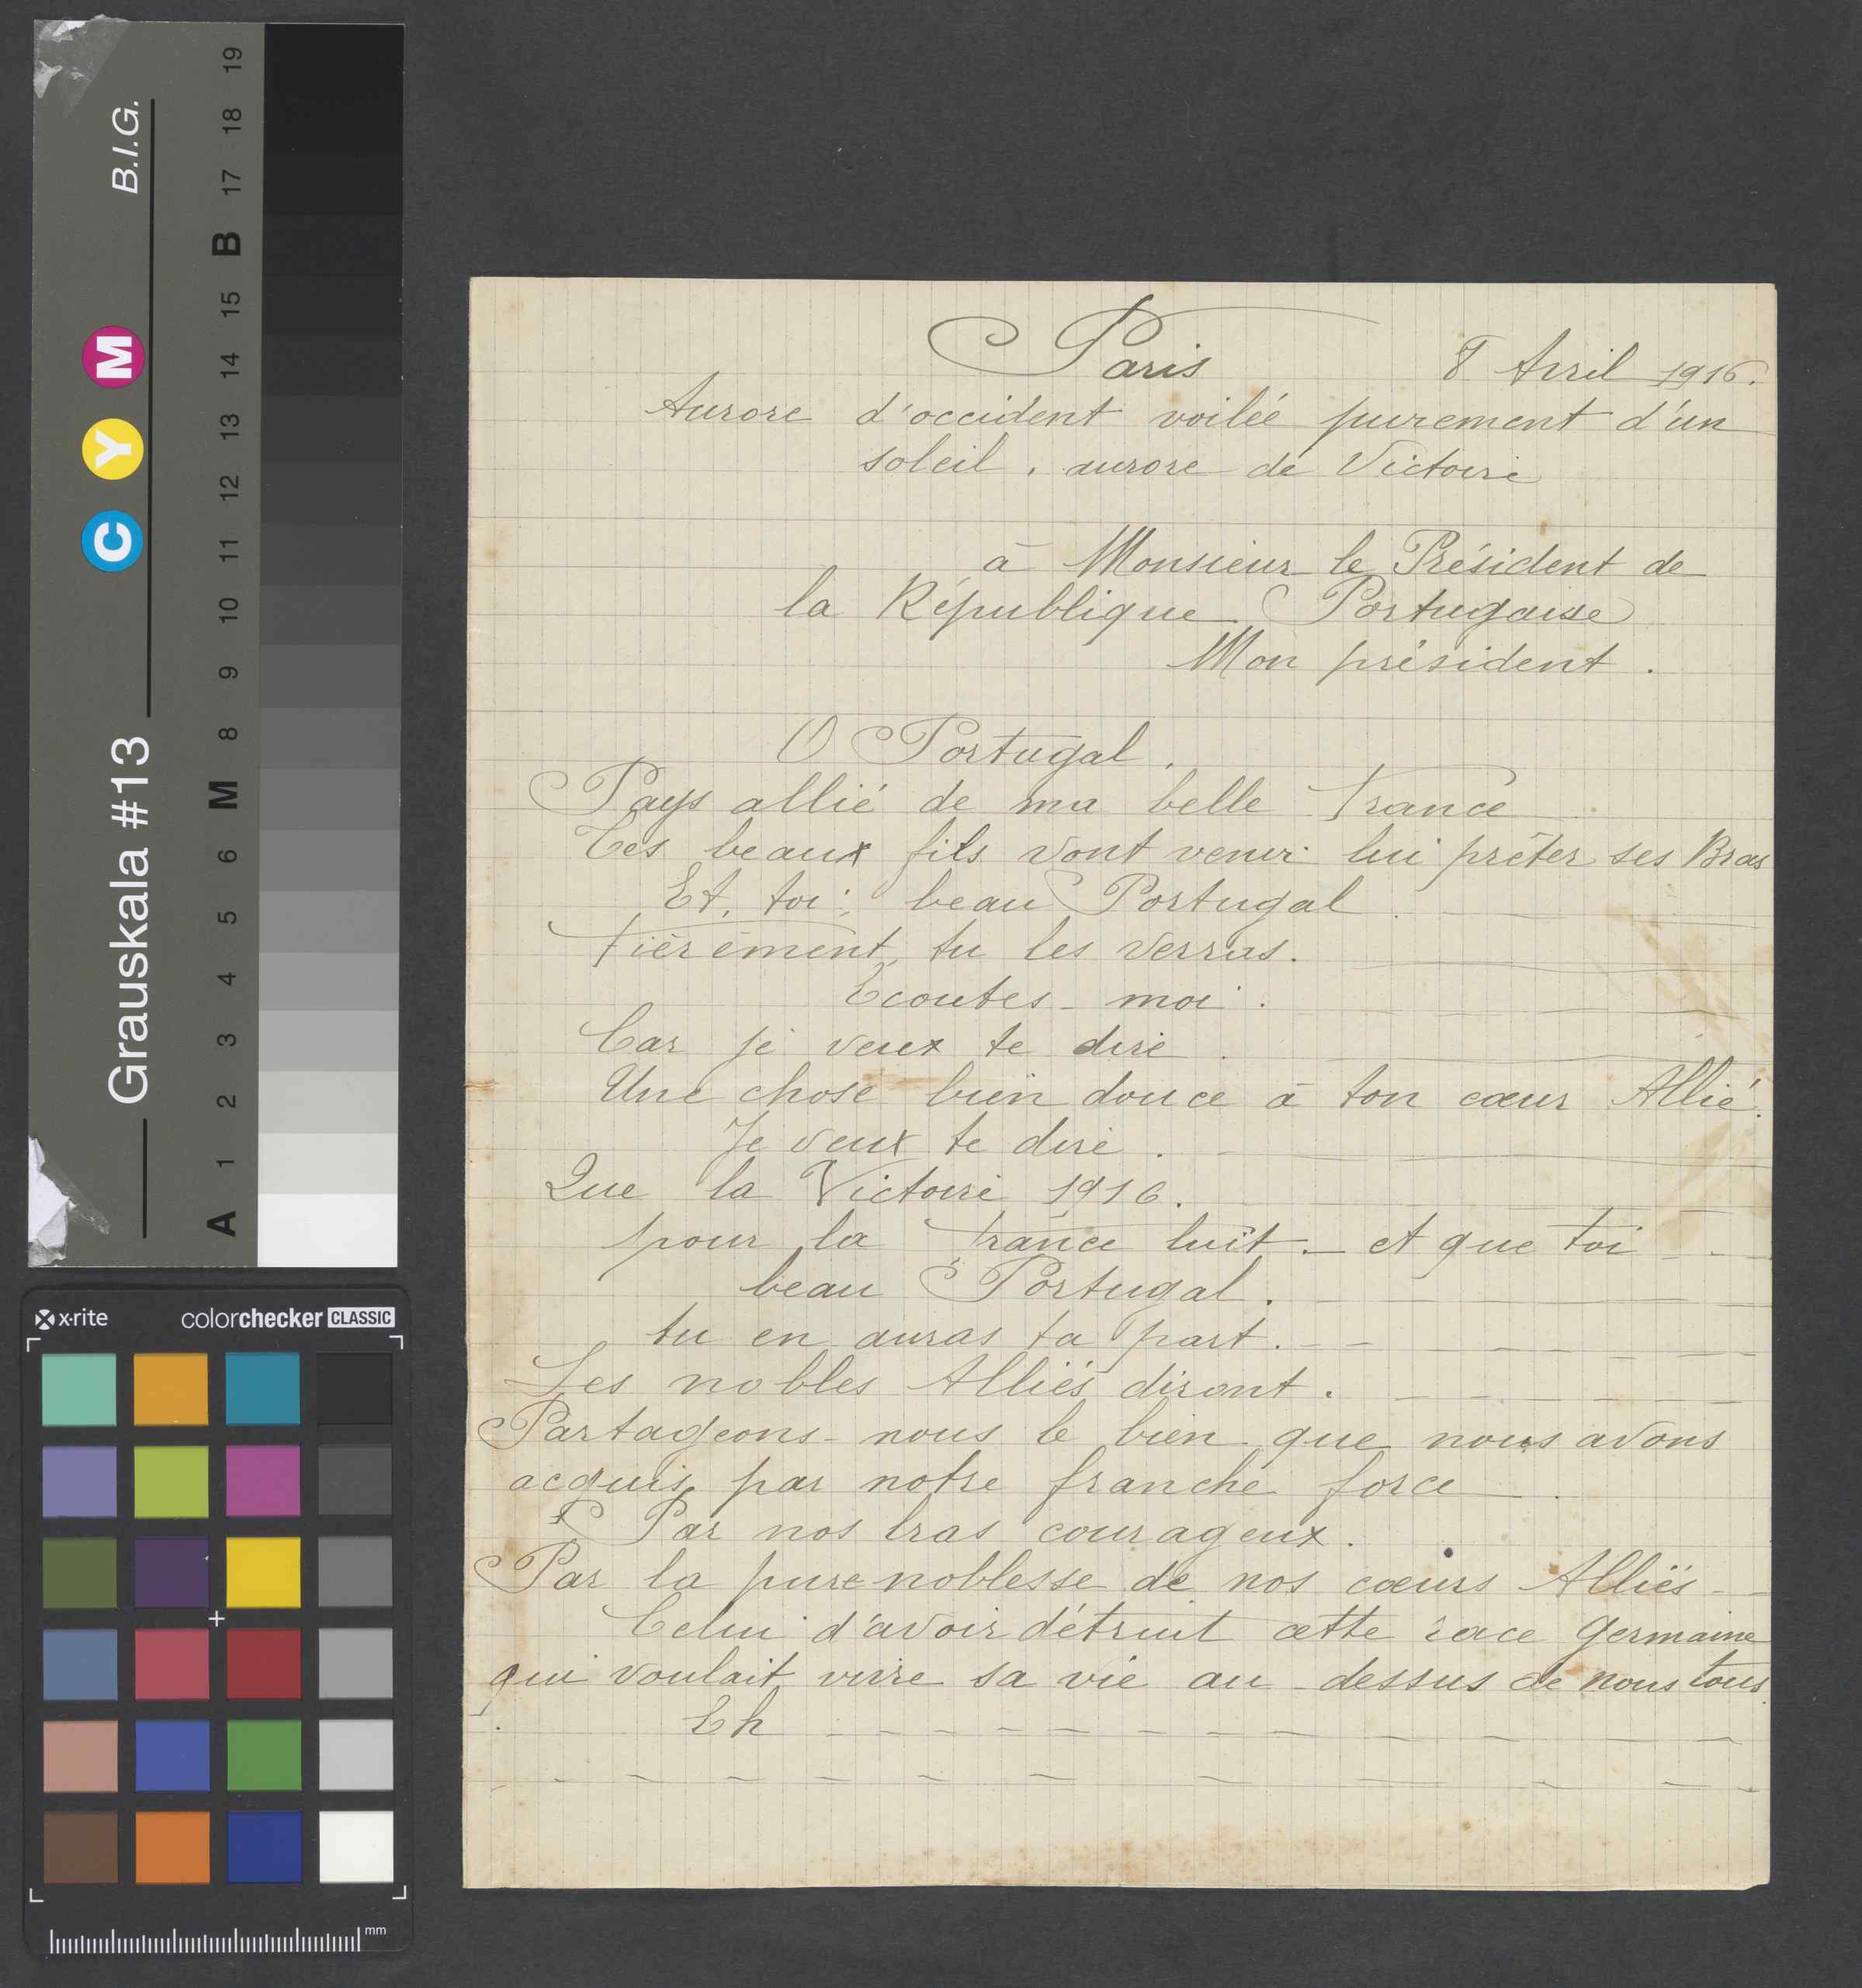 Grauskala #13
B.I.G.
C Y M
A 1 2 3 4 5 6 M 8 9 10 11 12 13 14 15 B 17 18 19
x·rite
colorchecker CLASSIC
mm
Paris 8 Avril 1916.
Aurore d'occident voilée purement d'un
soleil, aurore de Victoire
à Monsieur le Président de
la République Portugaise
Mon président.
O Portugal.
Pays allié de ma belle France
Tes beaux fils vont venir lui prêter ses Bras
Et, toi, beau Portugal
Fièrement, tu les verras.
Écoutes-moi.
Car je veux te dire.
Une chose bien douce à ton cœur Allié.
Je veux te dire.
Que la Victoire 1916.
pour la France luit. _ et que toi
beau Portugal.
tu en auras ta part.
Les nobles Alliés diront.
Partageons-nous le bien que nous avons
acquis par notre franche force
Par nos bras courageux.
Par la pure noblesse de nos cœurs Alliés
Celui d'avoir détruit cette race Germaine
qui voulait vivre sa vie au-dessus de nous tous.
Eh